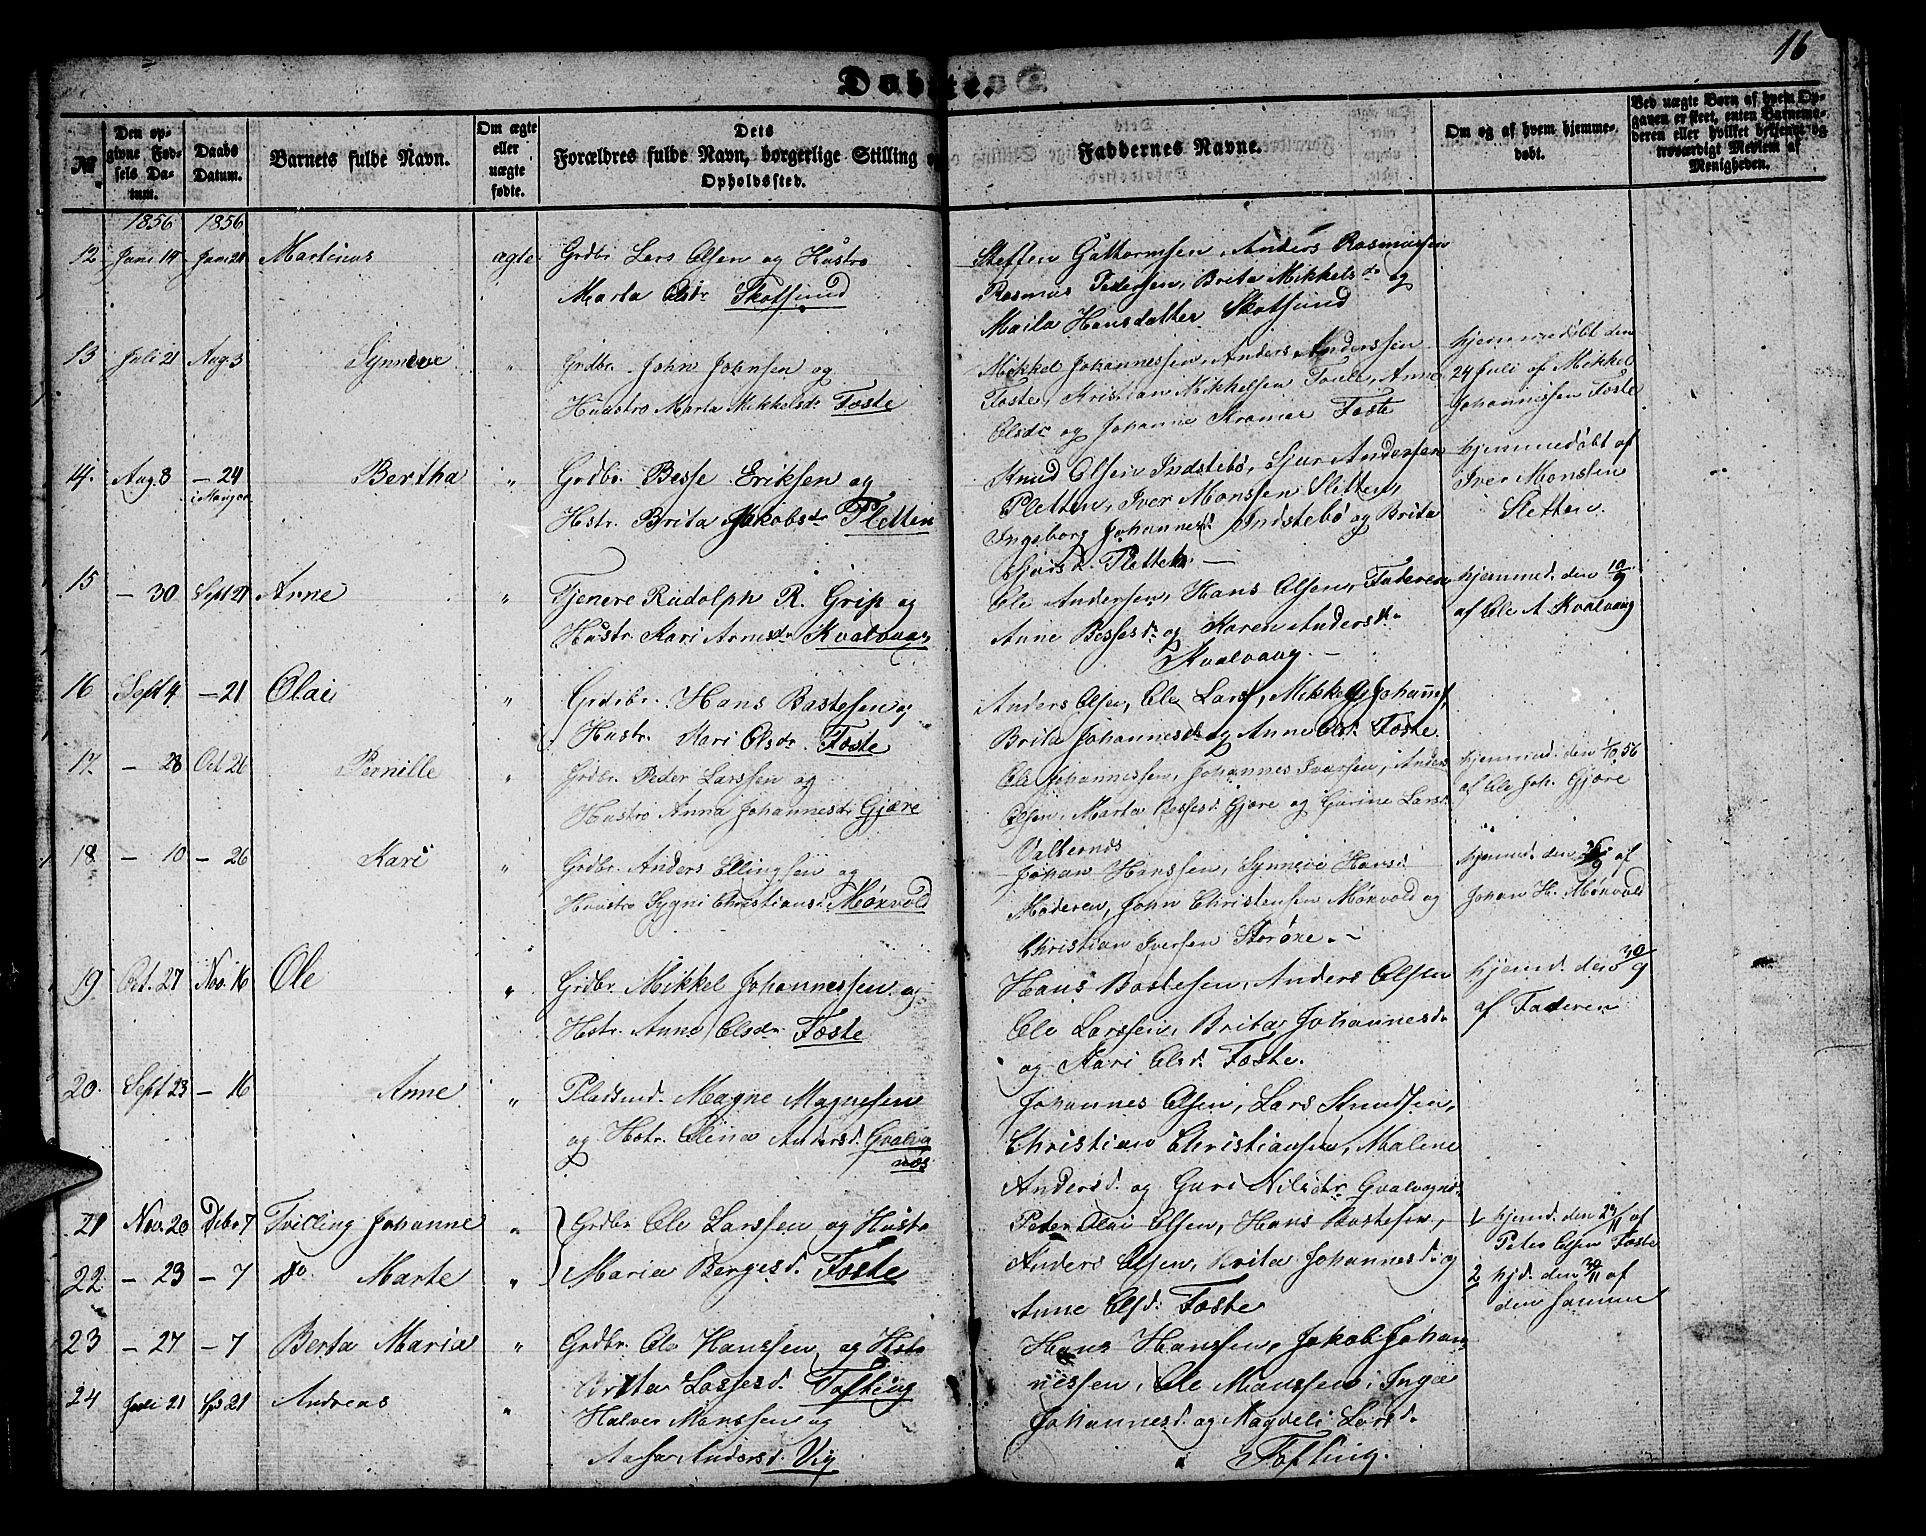 16
Døbte.
Nr.
Den opgivne Fødsels Datum.
Daabs Datum.
Barnets fulde Navn.
Om ægte eller uægte fødte.
Dets Forældres fulde Navn, borgerlige Stilling og Opholdssted.
Faddernes Navne.
Om og af hvem hjemmedøbt.
Ved uægte Børn af hvem Opgaven er skeet, enten Barnemoderen eller hvilket bekjendt og troværdigt Medlem af Menigheden.
1856 1856
12 Juni 14 Juni 21 Martinus ægte Grdbr Lars Olsen og Hustro
Marta Olsdr Skotsund
Steffen Guttormsen, Anders Rasmussen
Rasmus Pedersen, Brita Mikkelsdr og
Maila Hansdatter Skotsund
13 Juli 21 Aug. 3 Synneve " Grdbr. John Johnsen og
Hustro Marta Mikkelsdr. Foste
Mikkel Johannessen, Anders Anderssen
Foste, Kristian Mikkelsen Toule, Anne
Olsdr og Johanne Kramer Foste
hjemmedøbt den
24 Juli af Mikkel
Johannessen Foste
14. Aug. 8 — 24 Bertha " Grdbr. Besse Eriksen og
i Manger
Hstr. Brita Jakobsdr Pletten
Knud Olsen Indstebø, Sjur Andersen
Pletten, Iver Monssen Sletten,
Ingeborg Johannesd. Indstebø og Brita
Sjursd. Pletten —
hjemmedøbt af
Iver Monsten
Sletten.
15 — 30 Sept 21 Anne " Tjenere Rudolph R. Grip og
Hustr. Kari Arnesdr Kvalvaag
Ole Andersen, Hans Olsen, Faderen
Anne Bessesd. og Karen Andersdr.
Kvalvaag. —
hjemmed. den 10/9
af Ole A. Kvalvaag
16 Sept 4 — 21 Olai " Grdbr. Hans Bastesen og
Hustr. Kari Olsdr. Foste
Anders Olsen, Ole Lars, Mikkel Johanns,
Brita Johannesdr og Anne Olsd. Foste.
17. — 28 Oct 26 Pernille " Grdbr. Peter Larssen og
Hustro Anna Johannesdr Gjære
Ole Johannessen, Johannes Iversen, Anders
Olsen, Marta Bessesd. Gjøre og Gurine Larsd.
Valternes
hjemmed. den 1/10 56
af Ole Joh. Gjøre
18 — 10 — 26 Kari " Grdbr Anders Ellingsen og
Hustro Sygni Christiansd. Mørvold
Johan Hanssen, Synneve Hansd.
Moderen, John Christensen Mørvold og
Christian Iversen Storøne. —
hjemmd. den 26/9 af
Johan H. Mørvold
19. Oct. 27 Nov. 16 Ole " Grdbr. Mikkel Johannessen og
Hstr. Anne Olsdr Foste
Hans Bastesen, Anders Olsen
Ole Larssen, Brita Johannesd.
og Kari Olsd. Foste.
hjemd. den 30/9
af Faderen
20. Sept 23 — 16 Anne " Pladsmd. Magne Magnesen
og Hstr. Olina Andersd. Gvalva
nøs
Johannes Olsen, Lars Knudsen,
Christian Christiansen, Malene
Andersd. og Guri Nilsdr Gvalvagnøs
21 Nov. 20 Debr 7 Tvilling Johanne " Grdbr Ole Larssen og Hustro
22 — 23 — 7 Do Marte " Maria Bergesd. Foste
Peter Olai Olsen, Hans Bastesen,
Anders Olsen, Brita Johannesd. og
Anne Olsd. Foste
1 hjemd. den 23/11 af
Peter Olsen Foste
2 hjd. den 30/11 af
den samme
23 — 27 — 7 Berta Maria " Grdbr. Ole Hanssen og Hstr
Brita Lassesd. Tofting
Hans Hanssen, Jakob Johan
nessen, Ole Manssen, Inga
Johannesd. og Magdeli Larsd.
Tofting.
24 Juli 21 Sp 21 Andreas " Halvor Monssen og
Aasa Andersd. Vig